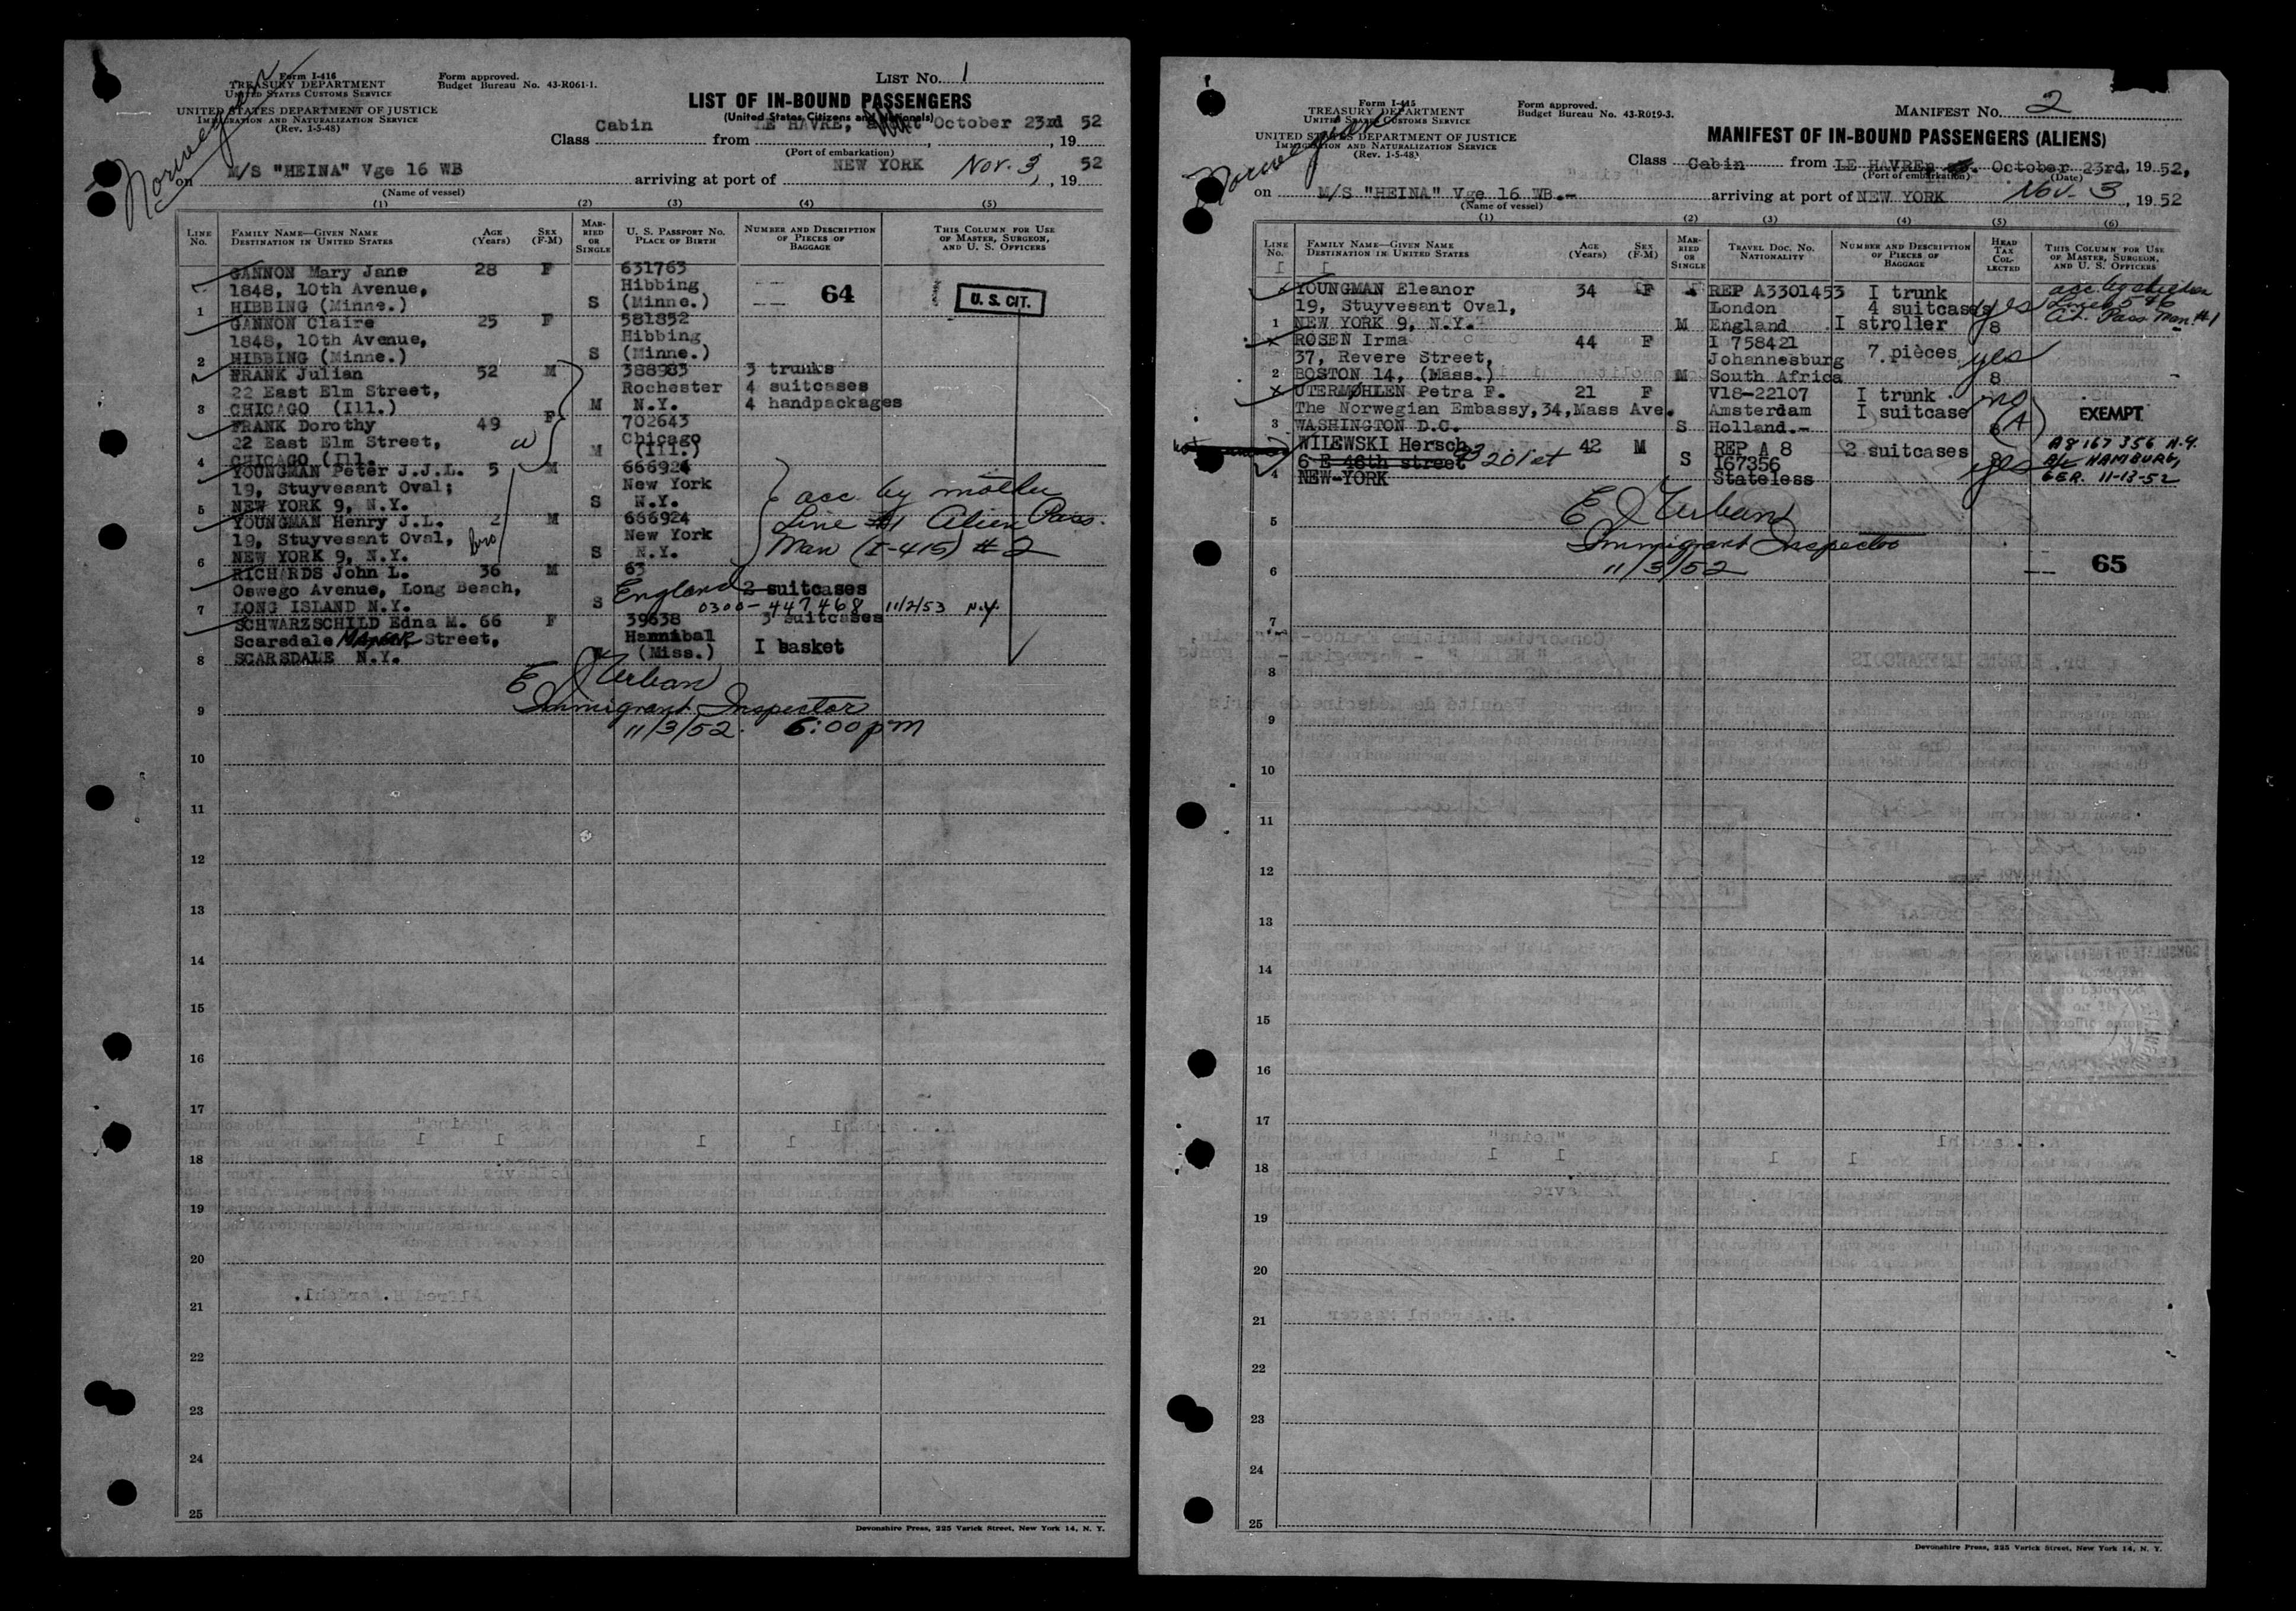 Norwegian
Form I-416
TREASURY DEPARTMENT
UNITED STATES CUSTOMS SERVICE
UNITED STATES DEPARTMENT OF JUSTICE
IMMIGRATION AND NATURALIZATION SERVICE
(Rev. 1-5-48)
Form approved.
Budget Bureau No. 43-R061-1.
LIST No. 1
LIST OF IN-BOUND PASSENGERS
(United States Citizens and Nationals)
Class Cabin from LE HAVRE, October 23rd, 19 52
(Port of embarkation)
on M/S "HEINA" Vge 16 WB arriving at port of NEW YORK Nov. 3, 19 52
(Name of vessel)
(1) (2) (3) (4) (5)
LINE No. FAMILY NAME—GIVEN NAME DESTINATION IN UNITED STATES AGE (Years) SEX (F-M) MARRIED OR SINGLE U. S. PASSPORT No. PLACE OF BIRTH NUMBER AND DESCRIPTION OF PIECES OF BAGGAGE THIS COLUMN FOR USE OF MASTER, SURGEON, AND U. S. OFFICERS
GANNON Mary Jane 28 F 631763
1848, 10th Avenue, Hibbing 64 U. S. CIT.
1 HIBBING (Minne.) S (Minne.)
GANNON Claire 25 F 581852
1848, 10th Avenue, Hibbing
2 HIBBING (Minne.) S (Minne.)
FRANK Julian 52 M 388983 3 trunks
22 East Elm Street, Rochester 4 suitcases
3 CHICAGO (Ill.) M N.Y. 4 handpackages
FRANK Dorothy 49 F 702643
22 East Elm Street, w Chicago
4 CHICAGO (Ill. M (Ill.)
YOUNGMAN Peter J.J.L. 5 M 666924
19, Stuyvesant Oval; New York acc. by mother
5 NEW YORK 9, N.Y. S N.Y. Line #1 Alien Pass.
YOUNGMAN Henry J.L. 2 M 666924 Man (I-415) #2
19, Stuyvesant Oval, bro New York
6 NEW YORK 9, N.Y. S N.Y.
RICHARDS John L. 36 M 63
Oswego Avenue, Long Beach, England 2 suitcases
7 LONG ISLAND N.Y. S 0300-447468 11/2/53 N.Y.
SCHWARZSCHILD Edna M. 66 F 39638 3 suitcases
Scarsdale Street, Hannibal
8 SCARSDALE N.Y. (Miss.) I basket
E J Urban
9 Immigrant Inspector
11/3/52. 6:00 pm
10
11
12
13
14
15
16
17
18
19
20
21
22
23
24
25
Devonshire Press, 225 Varick Street, New York 14, N. Y.
Norwegian
Form I-415
TREASURY DEPARTMENT
UNITED STATES CUSTOMS SERVICE
UNITED STATES DEPARTMENT OF JUSTICE
IMMIGRATION AND NATURALIZATION SERVICE
(Rev. 1-5-48)
Form approved.
Budget Bureau No. 43-R019-3.
MANIFEST No. 2
MANIFEST OF IN-BOUND PASSENGERS (ALIENS)
Class Cabin from LE HAVRE, October 23rd, 19 52,
(Port of embarkation) (Date)
on M/S "HEINA" Vge 16 WB.- arriving at port of NEW YORK Nov. 3, 19 52
(Name of vessel)
(1) (2) (3) (4) (5) (6)
LINE No. FAMILY NAME—GIVEN NAME DESTINATION IN UNITED STATES AGE (Years) SEX (F-M) MARRIED OR SINGLE TRAVEL DOC. NO. NATIONALITY NUMBER AND DESCRIPTION OF PIECES OF BAGGAGE HEAD TAX COLLECTED THIS COLUMN FOR USE OF MASTER, SURGEON, AND U. S. OFFICERS
YOUNGMAN Eleanor 34 F REP A3301453 I trunk acc. by children
19, Stuyvesant Oval, London 4 suitcases yes Lines 5 & 6
1 NEW YORK 9, N.Y. M England I stroller 8 Cit. Pass Man. #1
ROSEN Irma 44 F I 758421
37, Revere Street, Johannesburg 7 pièces yes
2 BOSTON 14, (Mass.) M South Africa 8
UTERMØHLEN Petra F. 21 F V18-22107 I trunk no
The Norwegian Embassy, 34, Mass Ave. Amsterdam I suitcase EXEMPT
3 WASHINGTON D.C. S Holland.- 8 (A)
WILEWSKI Hersch 42 M REP A 8 2 suitcases A8 167 356 N.Y.
6 E 46th street S 167356 8 yes HAMBURG,
4 NEW-YORK Stateless GER. 11-13-52
E J Urban
5 Immigrant Inspector
6 11/3/52 65
7
8
9
10
11
12
13
14
15
16
17
18
19
20
21
22
23
24
25
Devonshire Press, 225 Varick Street, New York 14, N. Y.